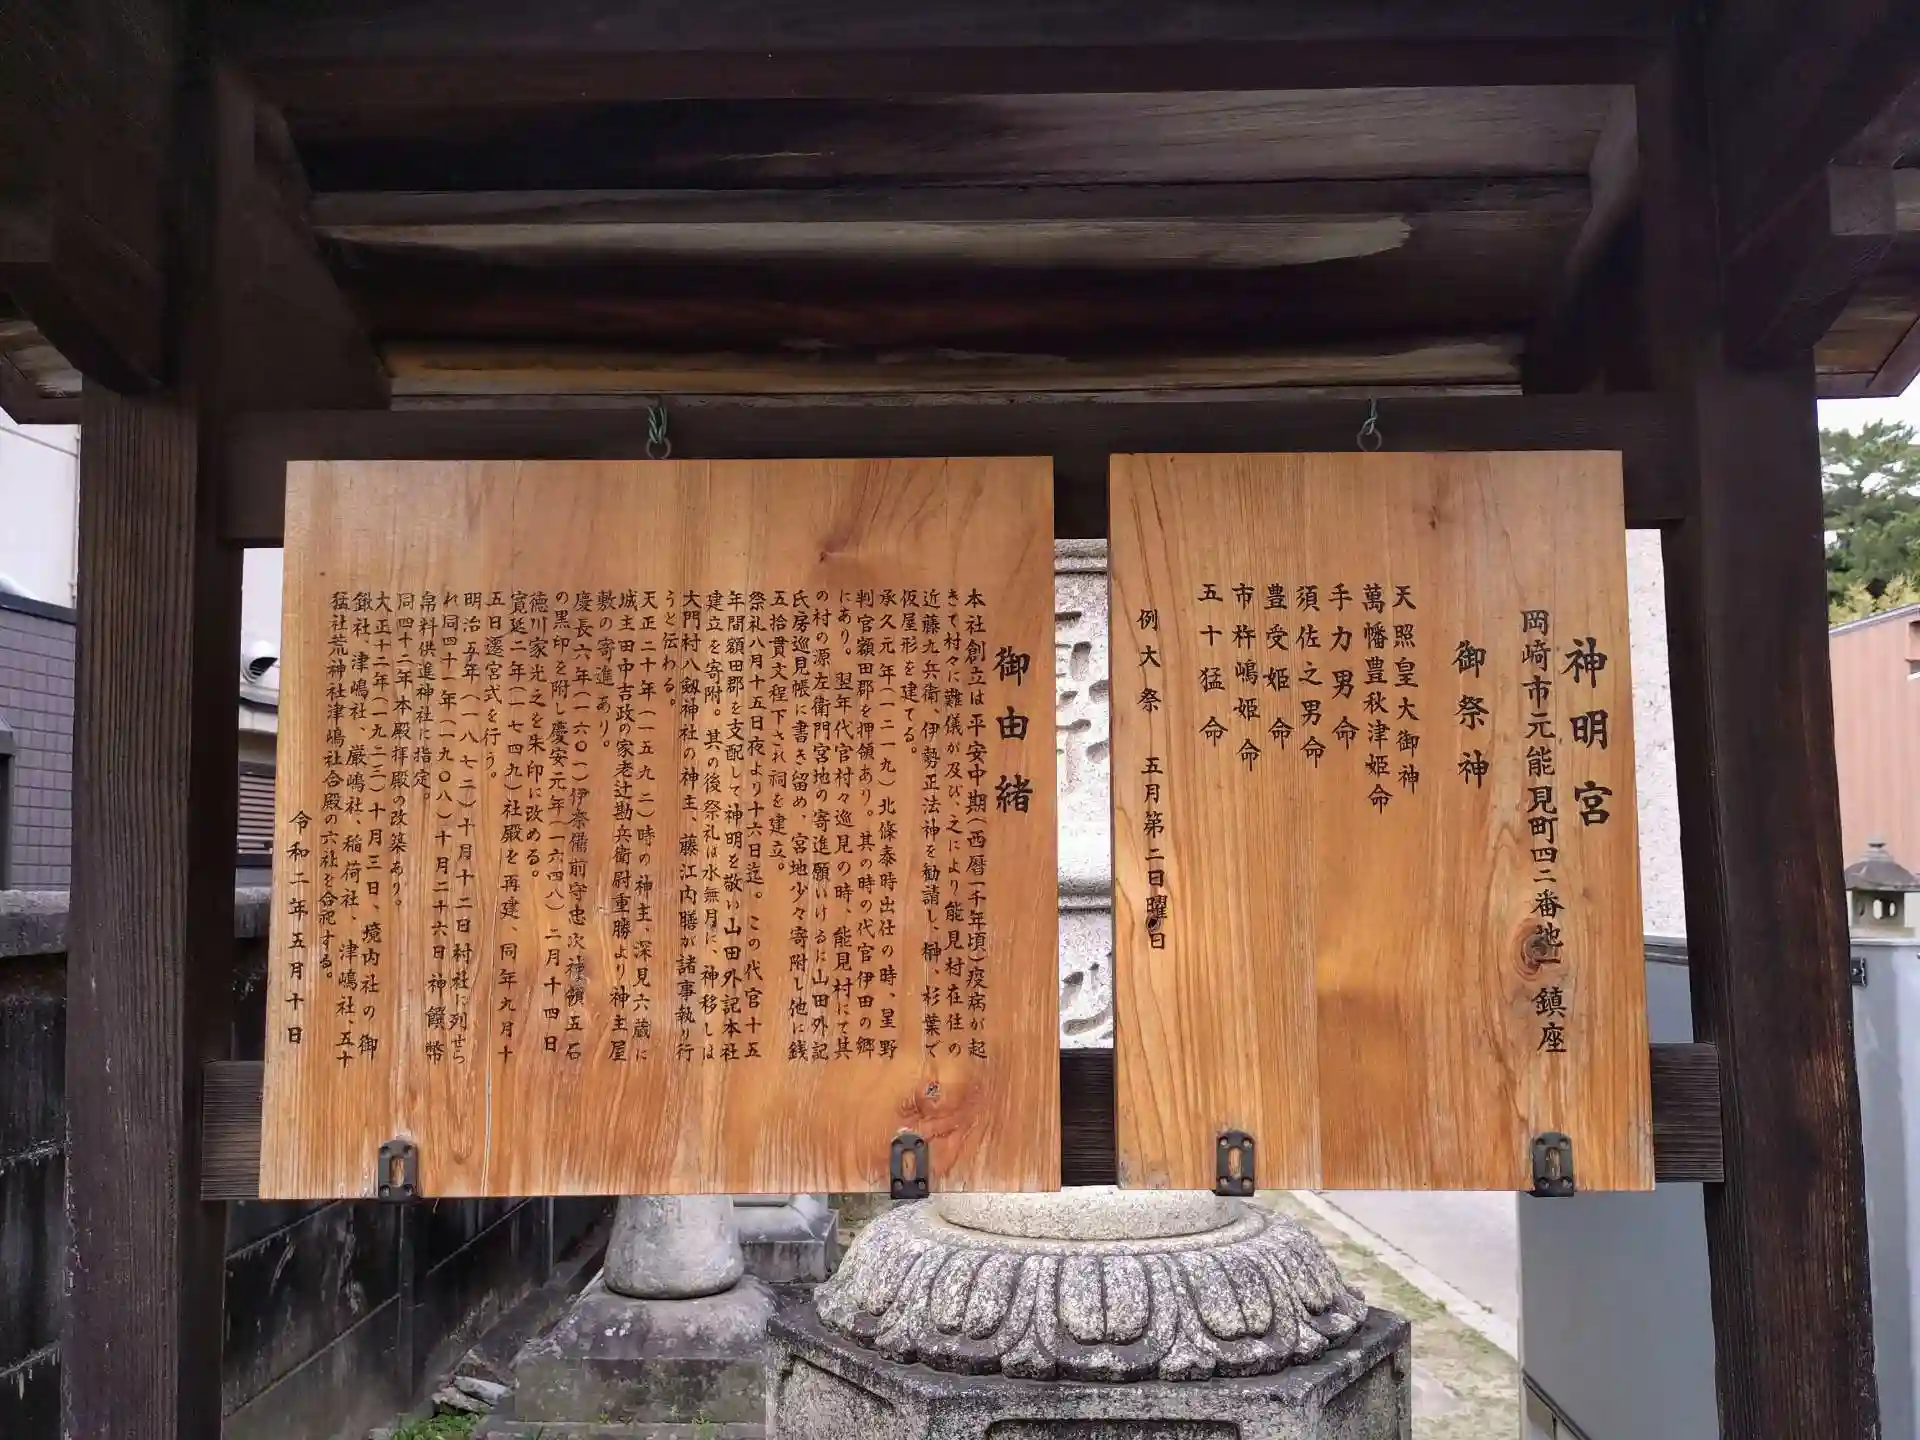 神明宮
岡崎市元能見町四二番地一 鎮座
御祭神
天照皇大御神
萬幡豊秋津姫命
手力男命
須佐之男命
豊受姫命
市杵嶋姫命
五十猛命
例大祭 五月第二日曜日
御由緒
本社創立は平安中期(西暦一千年頃)疫病が起
きて村々に難儀が及び、之により能見村在住の
近藤九兵衛、伊勢正法神を勧請し、榊、杉葉で
仮屋形を建てる。
承久元年(一二一九)北條泰時出仕の時、星野
判官額田郡を押領あり。其の時の代官伊田の郷
にあり。翌年代官村々巡見の時、能見村にて其
の村の源左衛門宮地の寄進願いけるに山田外記
氏房巡見帳に書き留め、宮地少々寄附し他に銭
五拾貫文程下され祠を建立。
祭礼八月十五日夜より十六日迄。この代官十五
年間額田郡を支配して神明を敬い山田外記本社
建立を寄附。其の後祭礼は水無月に、神移しは
大門村八劔神社の神主、藤江内膳が諸事執り行
うと伝わる。
天正二十年(一五九二)時の神主、深見六蔵に
城主田中吉政の家老辻勘兵衛尉重勝より神主屋
敷の寄進あり。
慶長六年(一六〇一)伊奈備前守忠次神領五石
の黒印を附し慶安元年(一六四八)二月十四日
徳川家光之を朱印に改める。
寛延二年(一七四九)社殿を再建、同年九月十
五日遷宮式を行う。
明治五年(一八七二)十月十二日村社に列せら
れ同四十一年(一九〇八)十月二十六日神饌幣
帛料供進神社に指定。
同四十二年本殿拝殿の改築あり。
大正十二年(一九二三)十月三日、境内社の御
鍬社、津嶋社、厳嶋社、稲荷社、津嶋社、五十
猛社荒神社津嶋社合殿の六社を合祀する。
令和二年五月十日